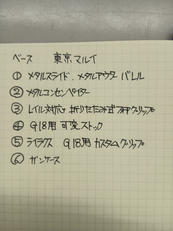 ベース 東京マルイ
① メタルスライド、メタルアウターバレル
② メタルコンセンペイター
③ レイル対応 折りたたみ式フォアグリップ
④ G18用 可変ストック
⑤ ライラクス G18用 カスタムグリップ
⑥ ガンケース